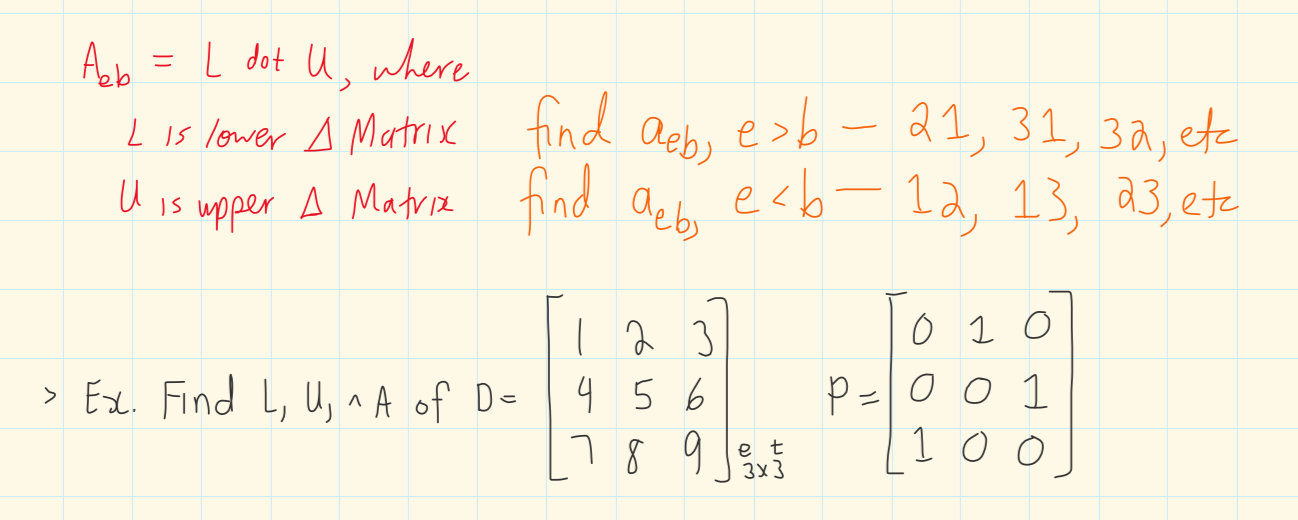 A_eb = L dot U, where
L is lower Δ Matrix find a_eb, e>b — 21, 31, 32, etc
U is upper Δ Matrix find a_eb, e<b — 12, 13, 23, etc
> Ex. Find L, U, ^ A of D = [1 2 3
4 5 6
7 8 9] e t
3x3
P = [0 1 0
0 0 1
1 0 0]